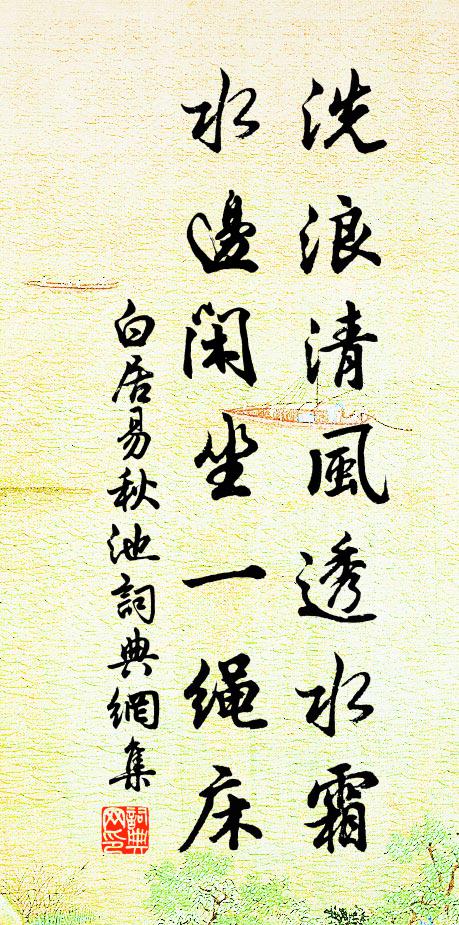 洗浪清風透水霜
水邊閑坐一绳床
白居易秋池詞典網集
詞典網印